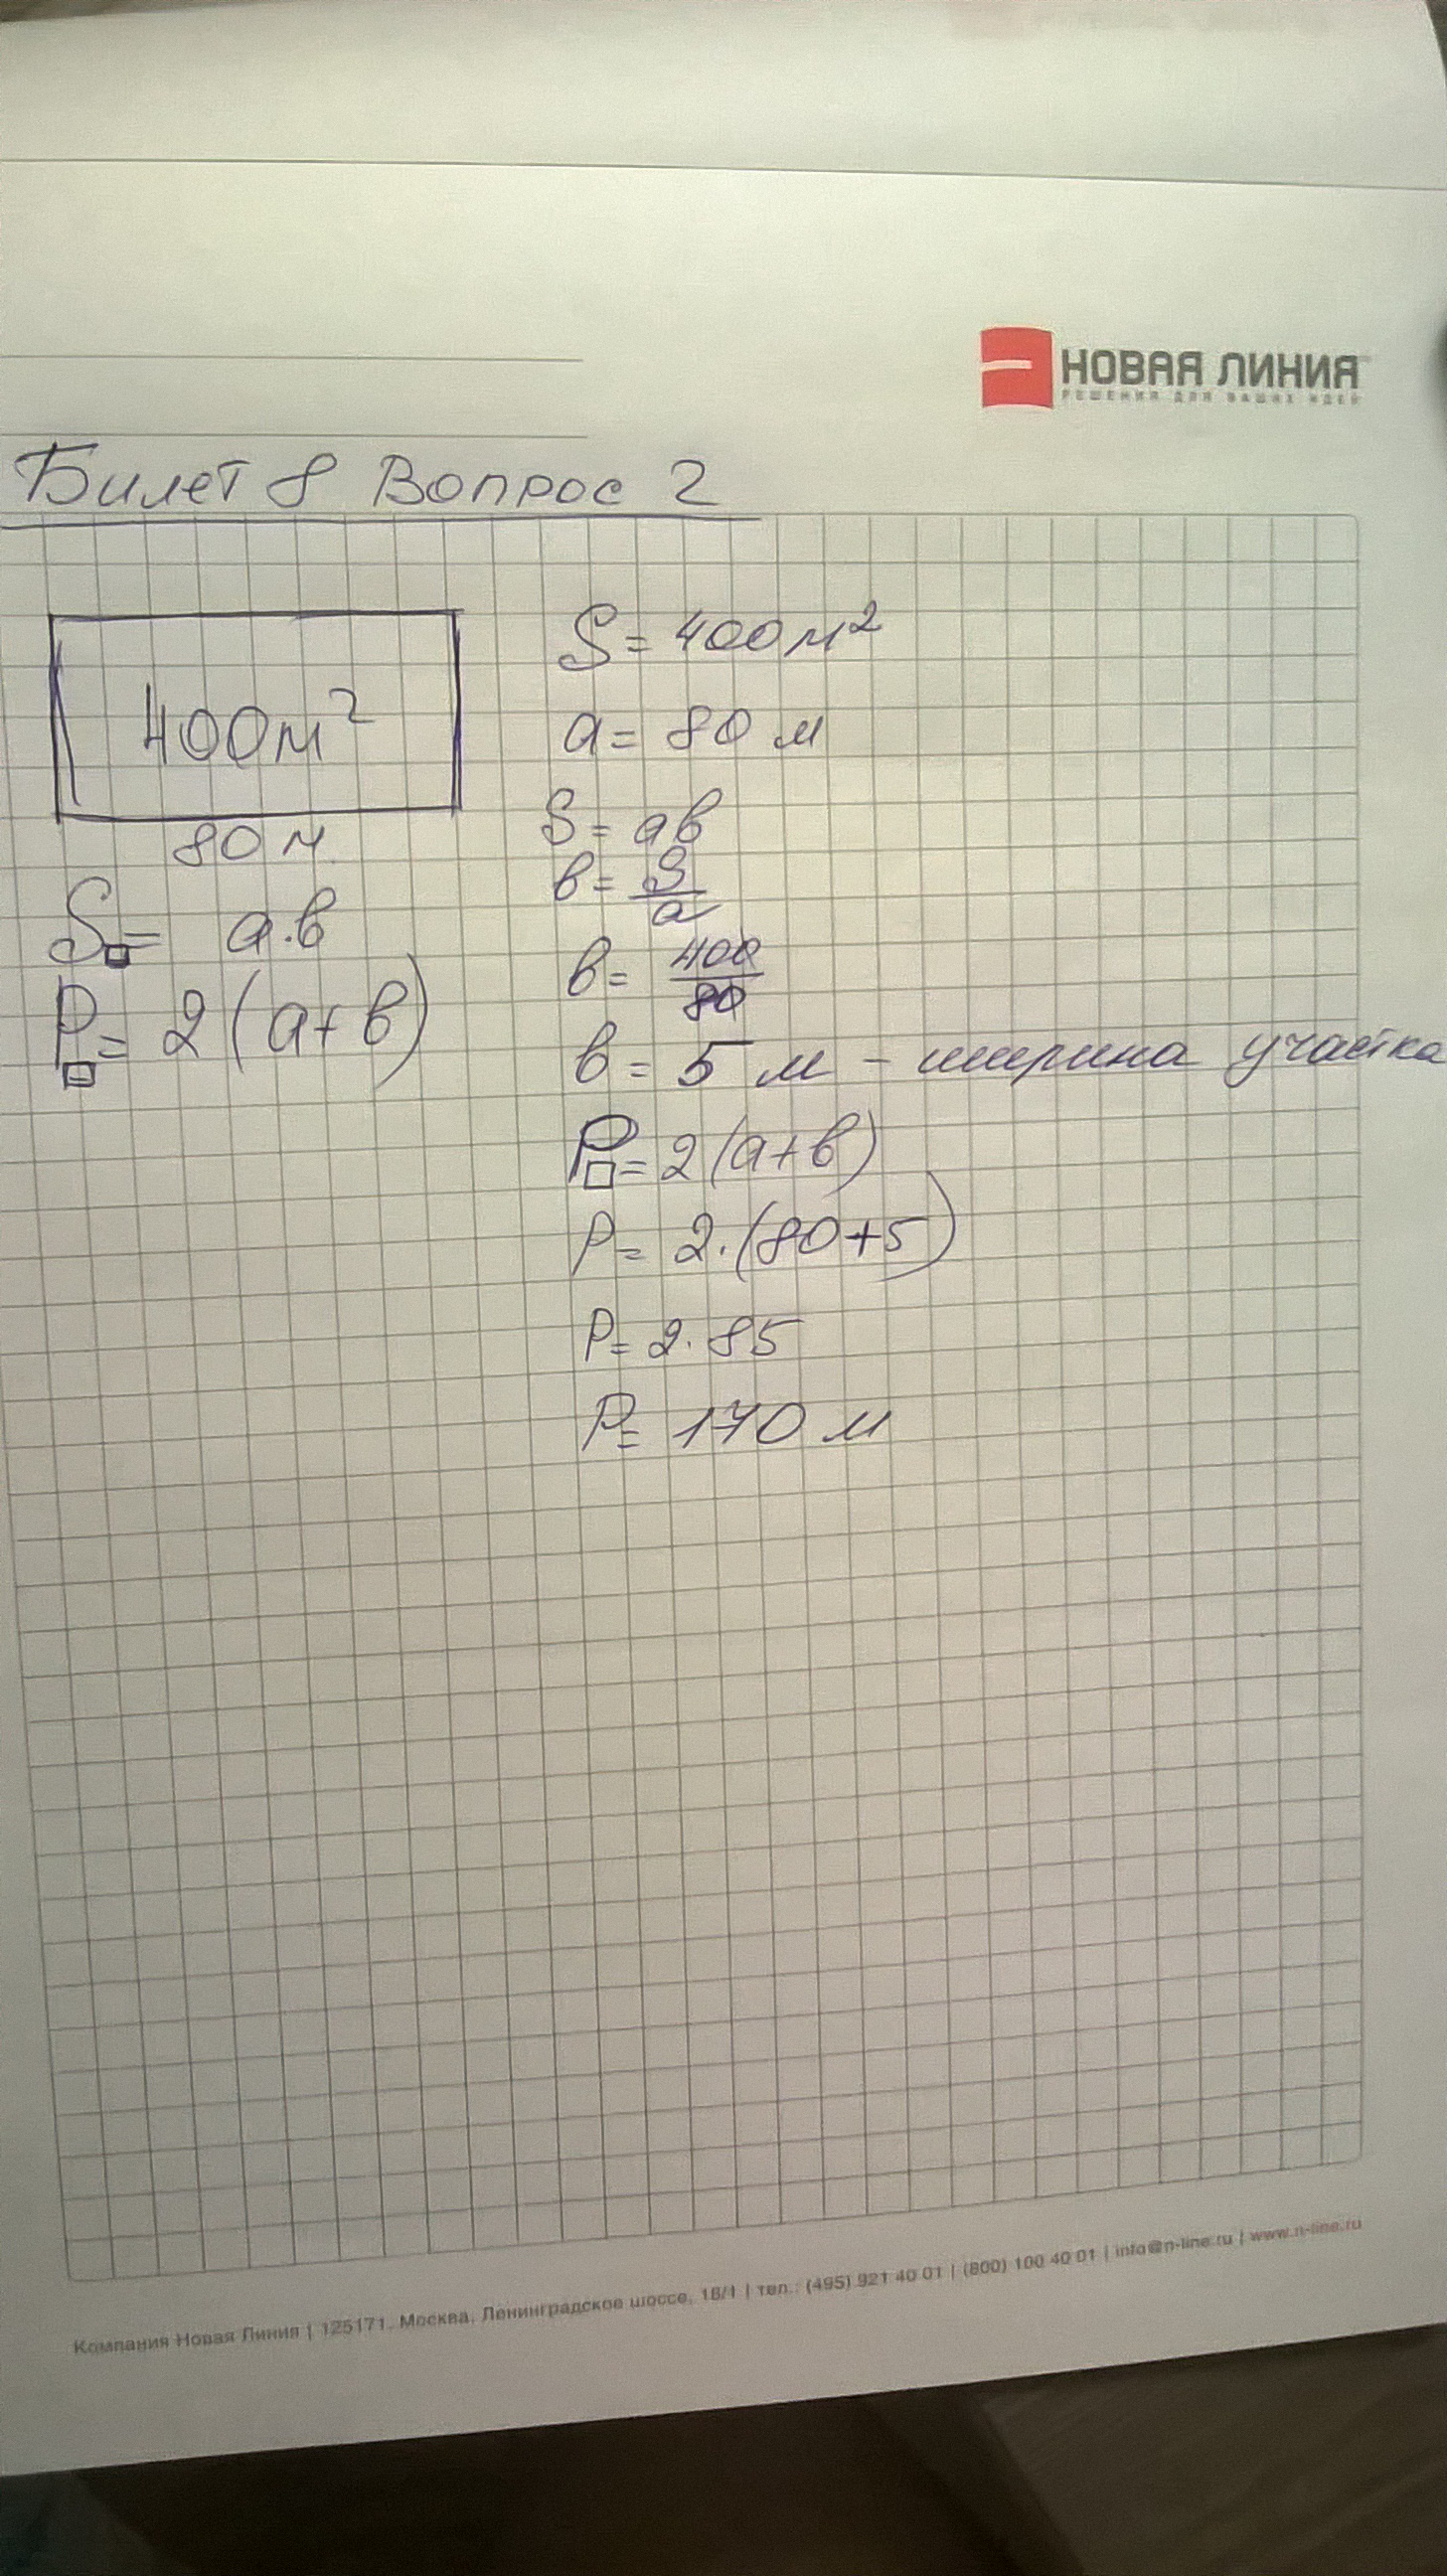 НОВАЯ ЛИНИЯ
РЕШЕНИЯ ДЛЯ ВАШИХ ИДЕЙ
Билет 8 Вопрос 2
400м²
80 м
S□ = a·в
P□ = 2(a+в)
S = 400м²
a = 80 м
S = aв
в = S/a
в = 400/80
в = 5 м – ширина участка
P□ = 2(a+в)
P = 2·(80+5)
P = 2·85
P = 170 м
Компания Новая Линия | 125171, Москва, Ленинградское шоссе, 16/1 | тел.: (495) 921 40 01 | (800) 100 40 01 | info@n-line.ru | www.n-line.ru